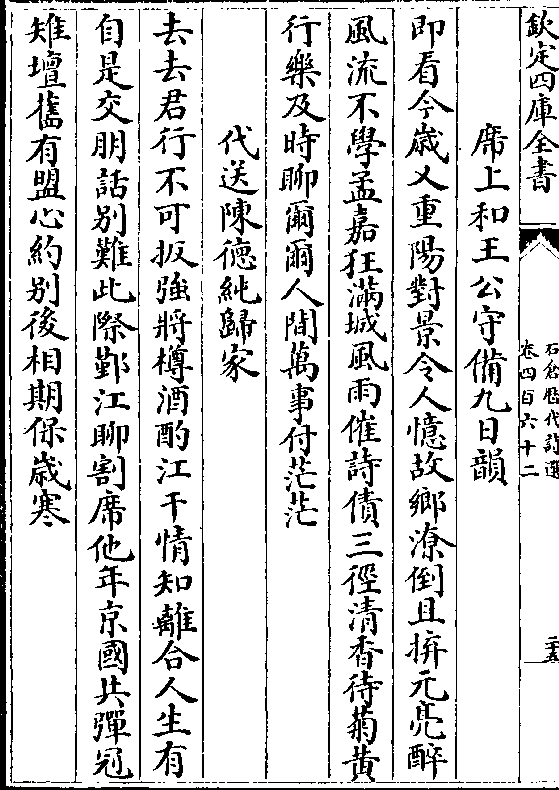 欽定四庫全書
石倉歷代詩選
卷四百六十二
二十五
席上和王公守備九日韻
即看今歲又重陽對景令人憶故鄉潦倒且拚元亮醉
風流不學孟嘉狂滿城風雨催詩債三徑清香待菊黃
行樂及時聊爾爾人間萬事付茫茫
代送陳德純歸家
去去君行不可扳強將樽酒酌江干情知離合人生有
自是交朋話別難此際鄞江聊割席他年京國共彈冠
雉壇舊有盟心約別後相期保歲寒